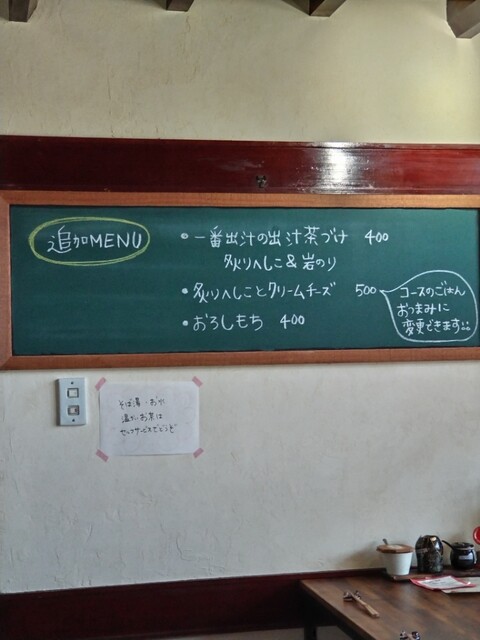 追加MENU
・一番出汁の出汁茶づけ 400
炙りへしこ&岩のり
・炙りへしことクリームチーズ 500
・おろしもち 400
コースのごはん
おつまみに
変更できます。。
そば湯・お水
温かいお茶は
セルフサービスでどうぞ